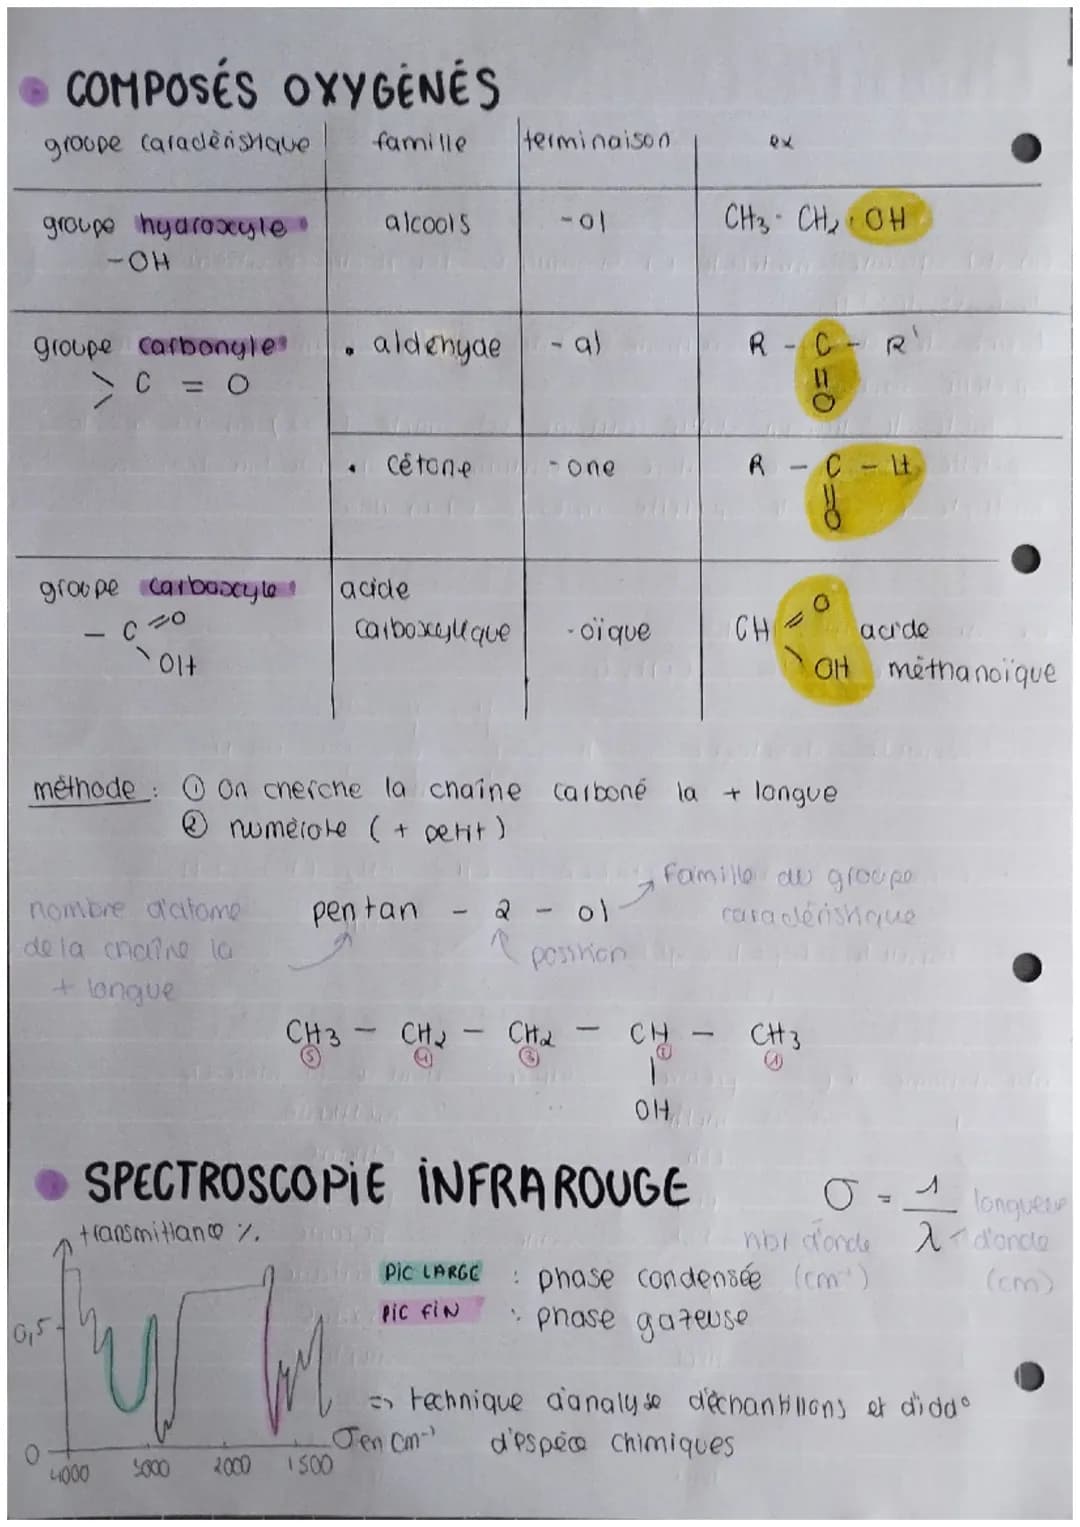 COMPOSÉS OXYGÉNÉS
groupe caractéristique famille terminaison ex
groupe hydroxyle alcools -ol CH3 - CH2 - OH
-OH
groupe carbonyle • aldéhyde - al R - C - R'
> C = O
||
O
• cétone - one R - C - H
||
O
groupe carboxyle acide
carboxylique -oïque CH =O acide
- C =O
\OH
\ OH méthanoïque
méthode : ① On cherche la chaîne carboné la + longue
② numérote ( + petit )
famille du groupe
caractéristique
nombre d'atome pentan - 2 - ol
de la chaîne la
position
+ longue
CH3 - CH2 - CH2 - CH - CH3
5 4 3 2 1
|
OH
SPECTROSCOPIE INFRAROUGE
σ = 1 / λ
longueur
d'onde
(cm)
nbr d'onde
(cm⁻¹)
transmittance %.
PIC LARGE : phase condensée
PIC FIN : phase gazeuse
0,5
=> technique d'analyse d'échantillons et d'idd°
d'espèce chimiques
σ en cm⁻¹
0
4000 3000 2000 1500